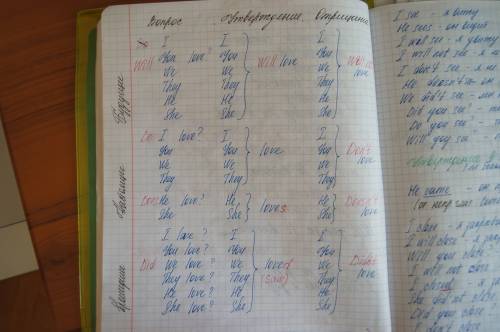 Вопрос Утверждение Отрицание
Будущее
I I I
Will You love? You Will love You Will not love
We We We
They They They
He He He
She She She
Настоящее
Do I love? I I
You You love You Don't love
We We We
They They They
Does He love? He loves He Doesn't love
She She She
Прошедшее
I love? I I
You love? You You
Did We love? We loved We Didn't love
They love? They (saw) They
He love? He He
She love? She She
I see - я вижу
He sees - он видит
I will see - я увижу
I will not see - я
I don't see - я не
He doesn't see - он
We didn't see - мы
Did you see?
Do you see?
Will you see
Утверждение
He came - он
I close - я закрываю
I will close - я
Will you close
I will not close
I closed - я
She did not close
Did you close
Don't close -